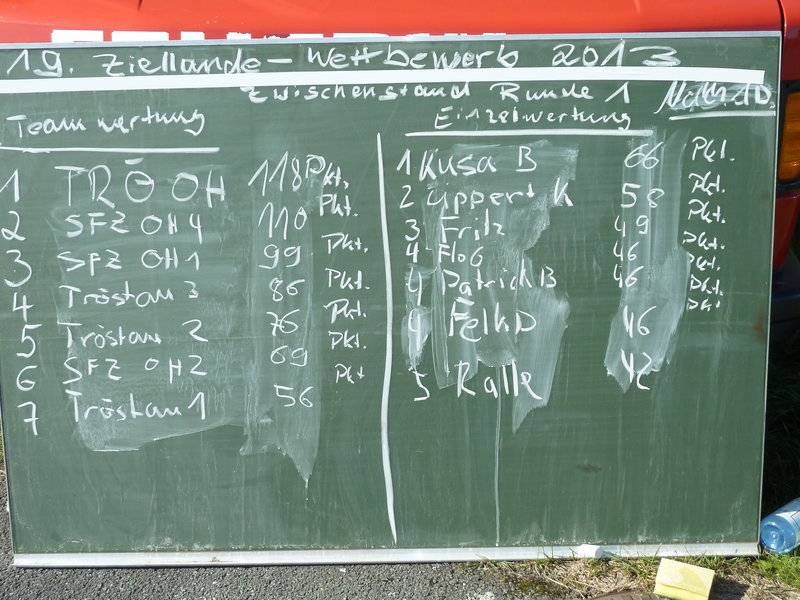 19. Ziellande-Wettbewerb 2013
Zwischenstand Runde 1
Teamwertung
1 TRÖOH 118 Pkt.
2 SFZ OH4 110 Pkt.
3 SFZ OH1 99 Pkt.
4 Tröstau 3 86 Pkt.
5 Tröstau 2 76 Pkt.
6 SFZ OH2 69 Pkt.
7 Tröstau 1 56 Pkt
Einzelwertung
1 Kusa B 66 Pkt.
2 Lippert K 58 Pkt.
3 Fritz 49 Pkt.
4 Flo G 46 Pkt.
4 Patrick B 46 Pkt.
4 Felk D 46 Pkt.
5 Ralle 42 Pkt